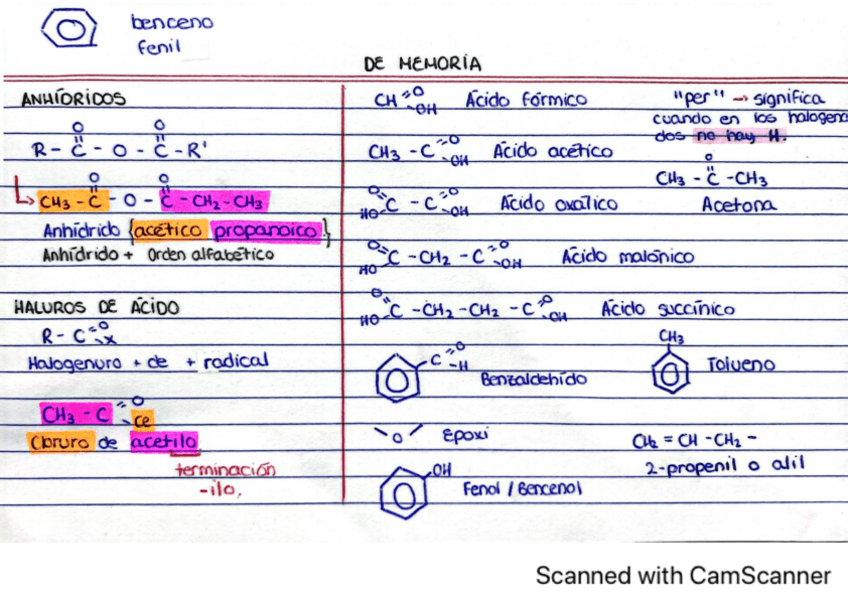 benceno
fenil
DE MEMORÍA
ANHÍDRIDOS
O O
R - C - O - C - R'
O O
CH3 - C - O - C - CH2 - CH3
Anhídrido {acético propanoico}
Anhídrido + Orden alfabético
HALUROS DE ÁCIDO
R - C =O -X
Halogenuro + de + radical
CH3 - C =O Cl
Cloruro de acetilo
terminación
-ilo,
CH =O -OH Ácido fórmico
CH3 - C =O -OH Ácido acético
O= HO C - C =O -OH Ácido oxálico
O= HO C - CH2 - C =O -OH Ácido malónico
O= HO C - CH2 - CH2 - C =O -OH Ácido succínico
C =O -H Benzaldehído
O Epoxi
OH Fenol / Bencenol
"per" → significa
cuando en los halogena
dos no hay H.
O
CH3 - C - CH3
Acetona
CH3
Tolueno
CH2 = CH - CH2 -
2-propenil o alil
Scanned with CamScanner